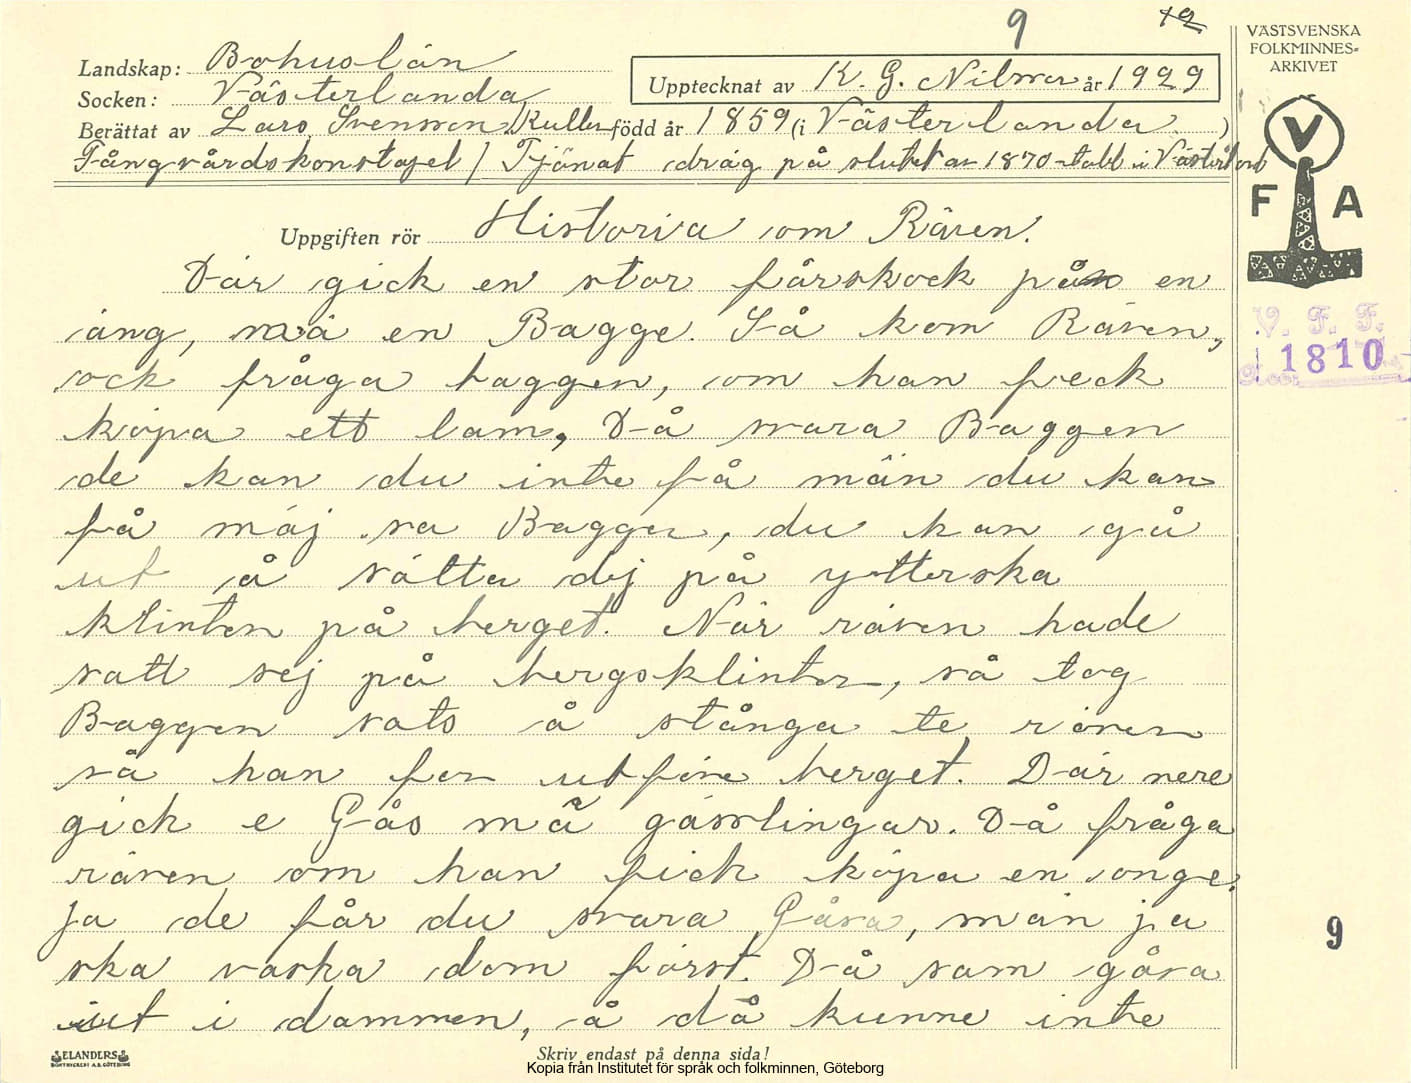 9 12
VÄSTSVENSKA
FOLKMINNES=
ARKIVET
Landskap: Bohuslän
Upptecknat av K. G. Nilsson år 1929
Socken: Västerlanda
Berättat av Lars Svensson, Kullen född år 1859 (i Västerlanda)
Fångvårdskonstapel / Tjänat dräg på slutet av 1870-talet i Västerland
V
F A
Uppgiften rör Historia om Räven.
Där gick en stor fårskock på en
äng, mä en Bagge. Så kom Räven,
ock fråga baggen, om han feck
köpa ett lam, Då svara Baggen
de kan du inte få män du kan
få mäj sa Baggen, du kan gå
ut å sätta dej på ytterska
klinten på berget. När räven hade
satt sej på bergsklinten, så tog
Baggen sats å stånga te räven
så han for utföre berget. Där nere
gick e Gås mä gässlingar. Då fråga
räven om han fick köpa en onge,
Ja de får du svara Gåsa, män ja
ska vaska dom först. Då sam gåsa
ut i dammen, å då kunne inte
V. F. F.
1810
9
ELANDERS
BOKTRYCKERI A.B. GÖTEBORG
Skriv endast på denna sida!
Kopia från Institutet för språk och folkminnen, Göteborg